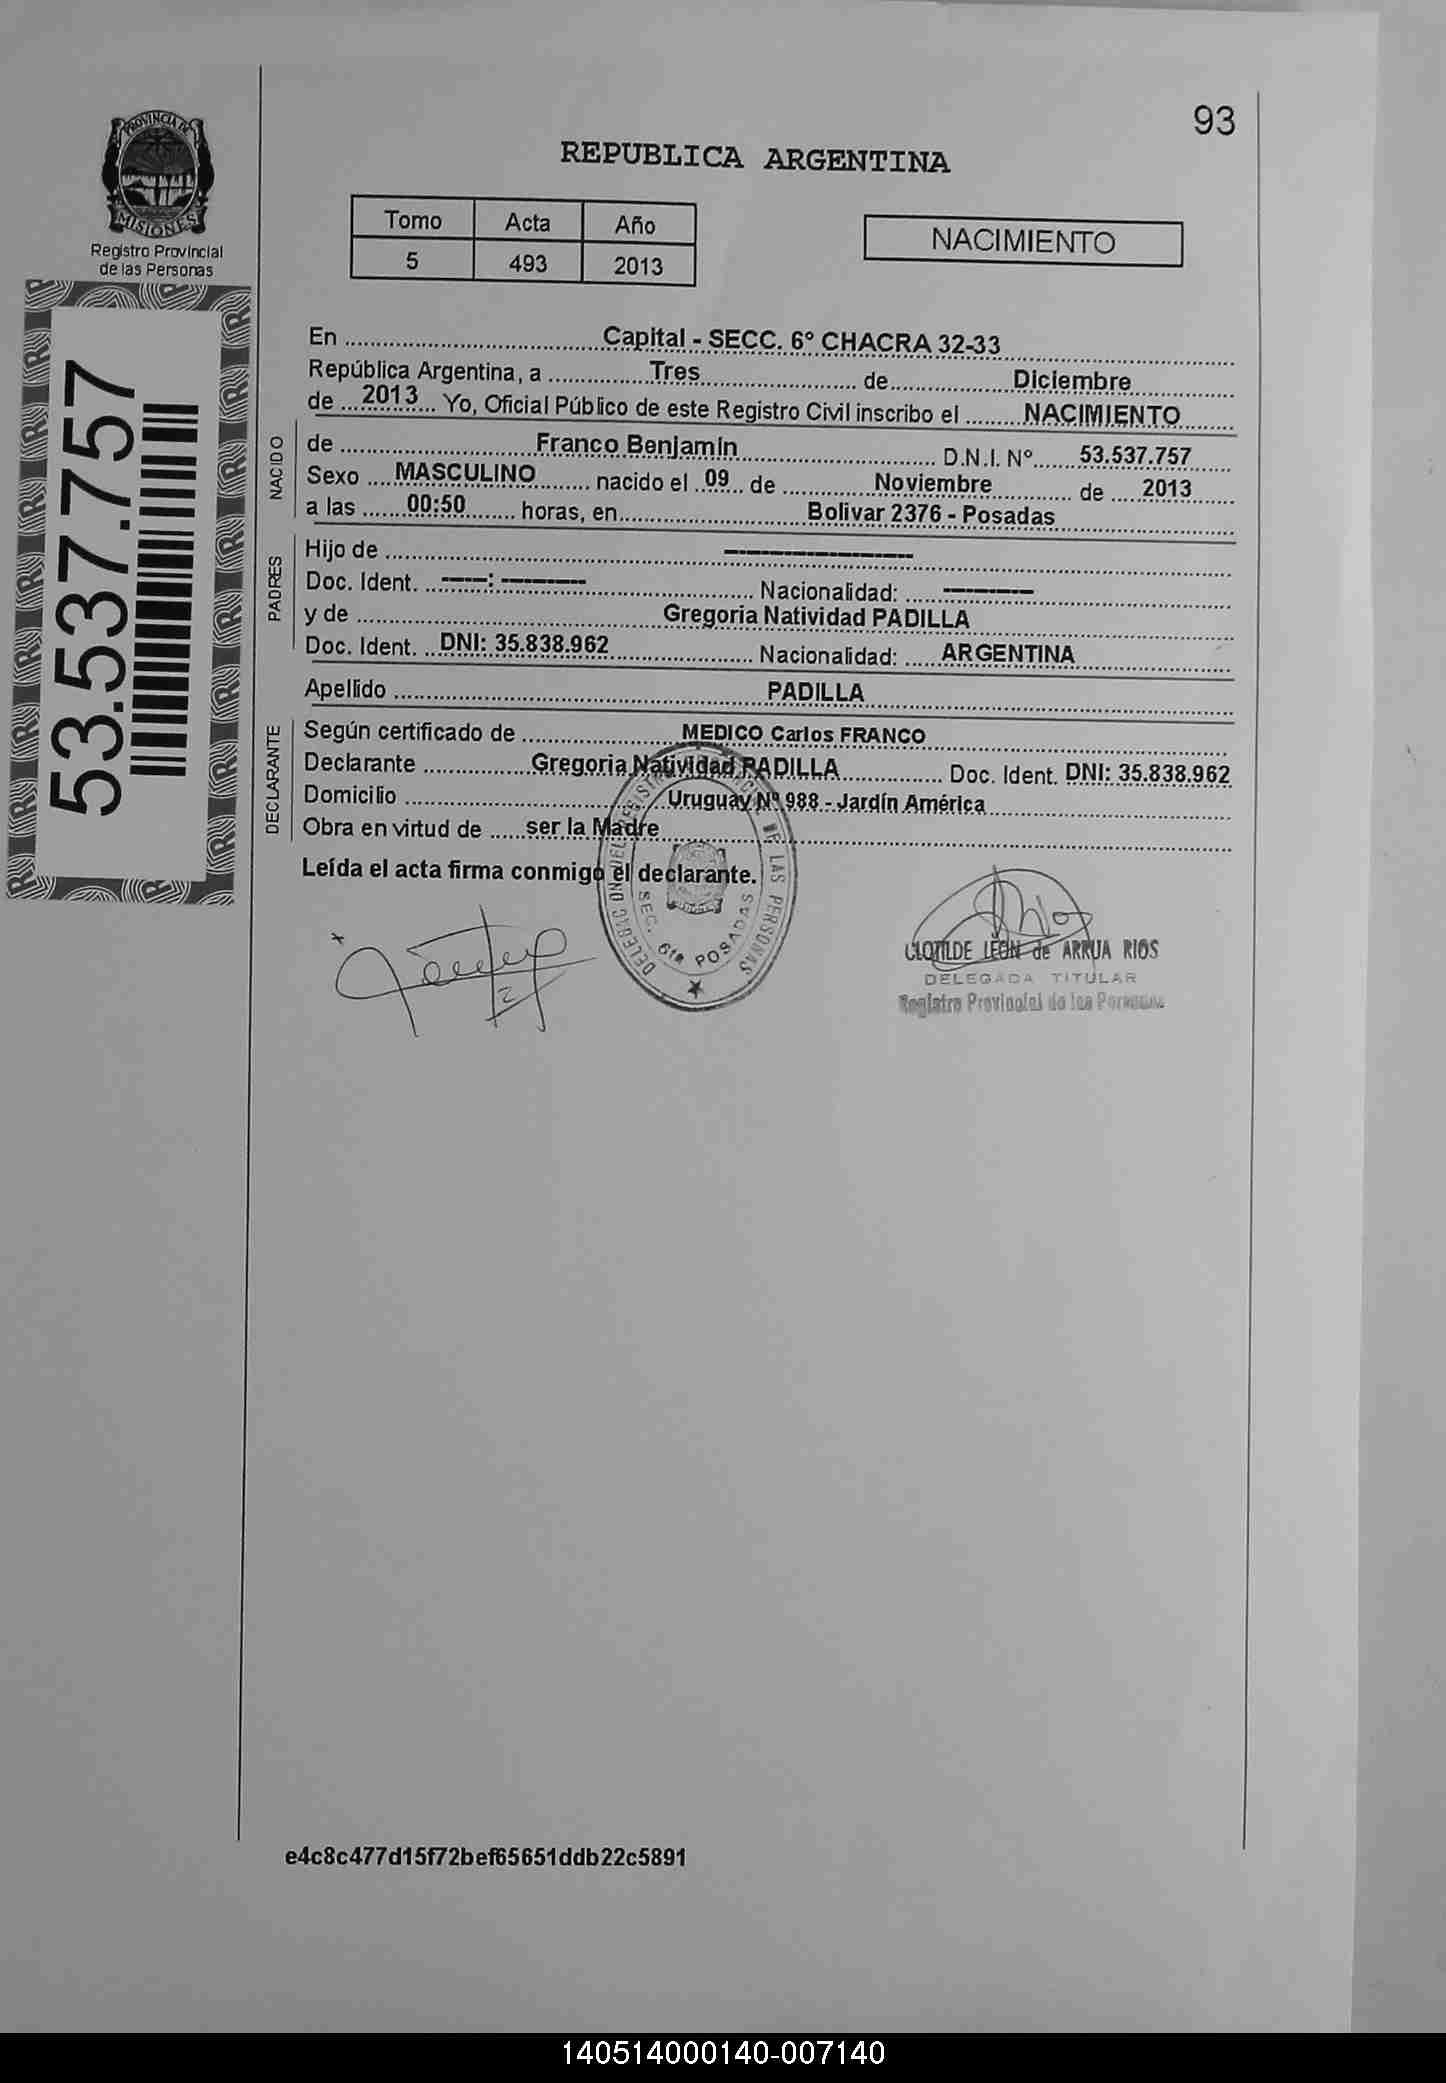 93
PROVINCIA DE
MISIONES
Registro Provincial
de las Personas
53.537.757
REPUBLICA ARGENTINA
Tomo Acta Año
5 493 2013
NACIMIENTO
En Capital - SECC. 6º CHACRA 32-33
República Argentina, a Tres de Diciembre
de 2013 Yo, Oficial Público de este Registro Civil inscribo el NACIMIENTO
NACIDO
de Franco Benjamín D.N.I. Nº 53.537.757
Sexo MASCULINO nacido el 09 de Noviembre de 2013
a las 00:50 horas, en Bolivar 2376 - Posadas
PADRES
Hijo de --------------------
Doc. Ident. -----: --------- Nacionalidad: ----------
y de Gregoria Natividad PADILLA
Doc. Ident. DNI: 35.838.962 Nacionalidad: ARGENTINA
Apellido PADILLA
DECLARANTE
Según certificado de MEDICO Carlos FRANCO
Declarante Gregoria Natividad PADILLA Doc. Ident. DNI: 35.838.962
Domicilio Uruguay Nº 988 - Jardín América
Obra en virtud de ser la Madre
Leída el acta firma conmigo el declarante.
DELEGACION DEL REGISTRO PROVINCIAL DE LAS PERSONAS
SEC. 6ta POSADAS
CLOTILDE LEON de ARRUA RIOS
DELEGADA TITULAR
Registro Provincial de las Personas
e4c8c477d15f72bef65651ddb22c5891
140514000140-007140